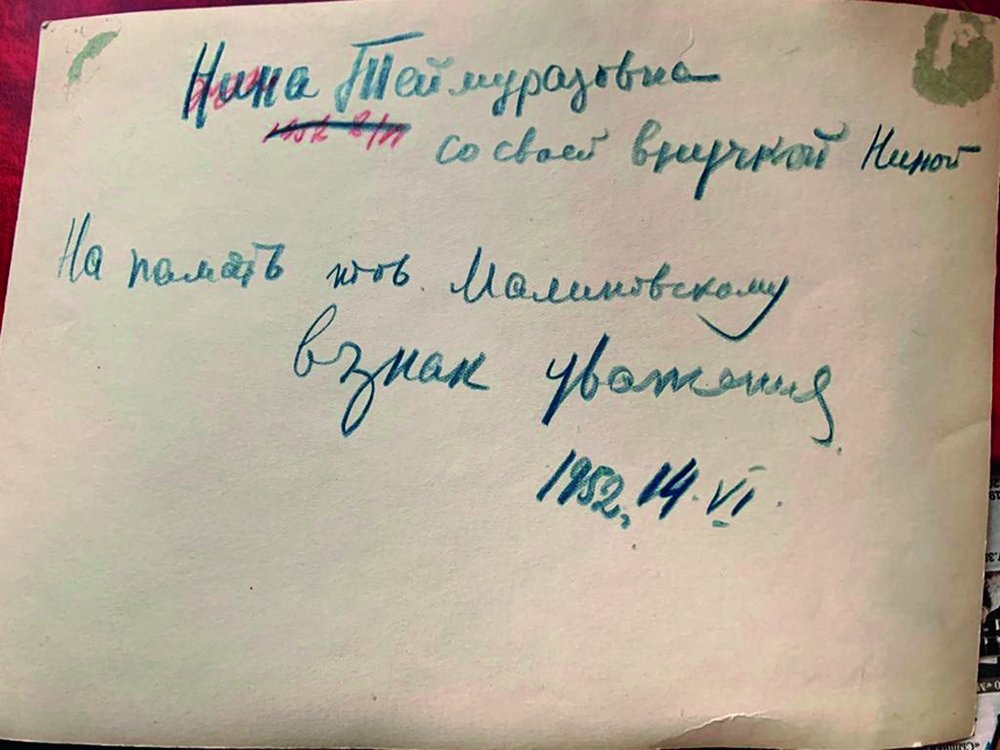 Нина Теймуразовна
1952 2/VI
со своей внучкой Ниной
На память тов. Малиновскому
в знак уважения
1952. 14. VI.